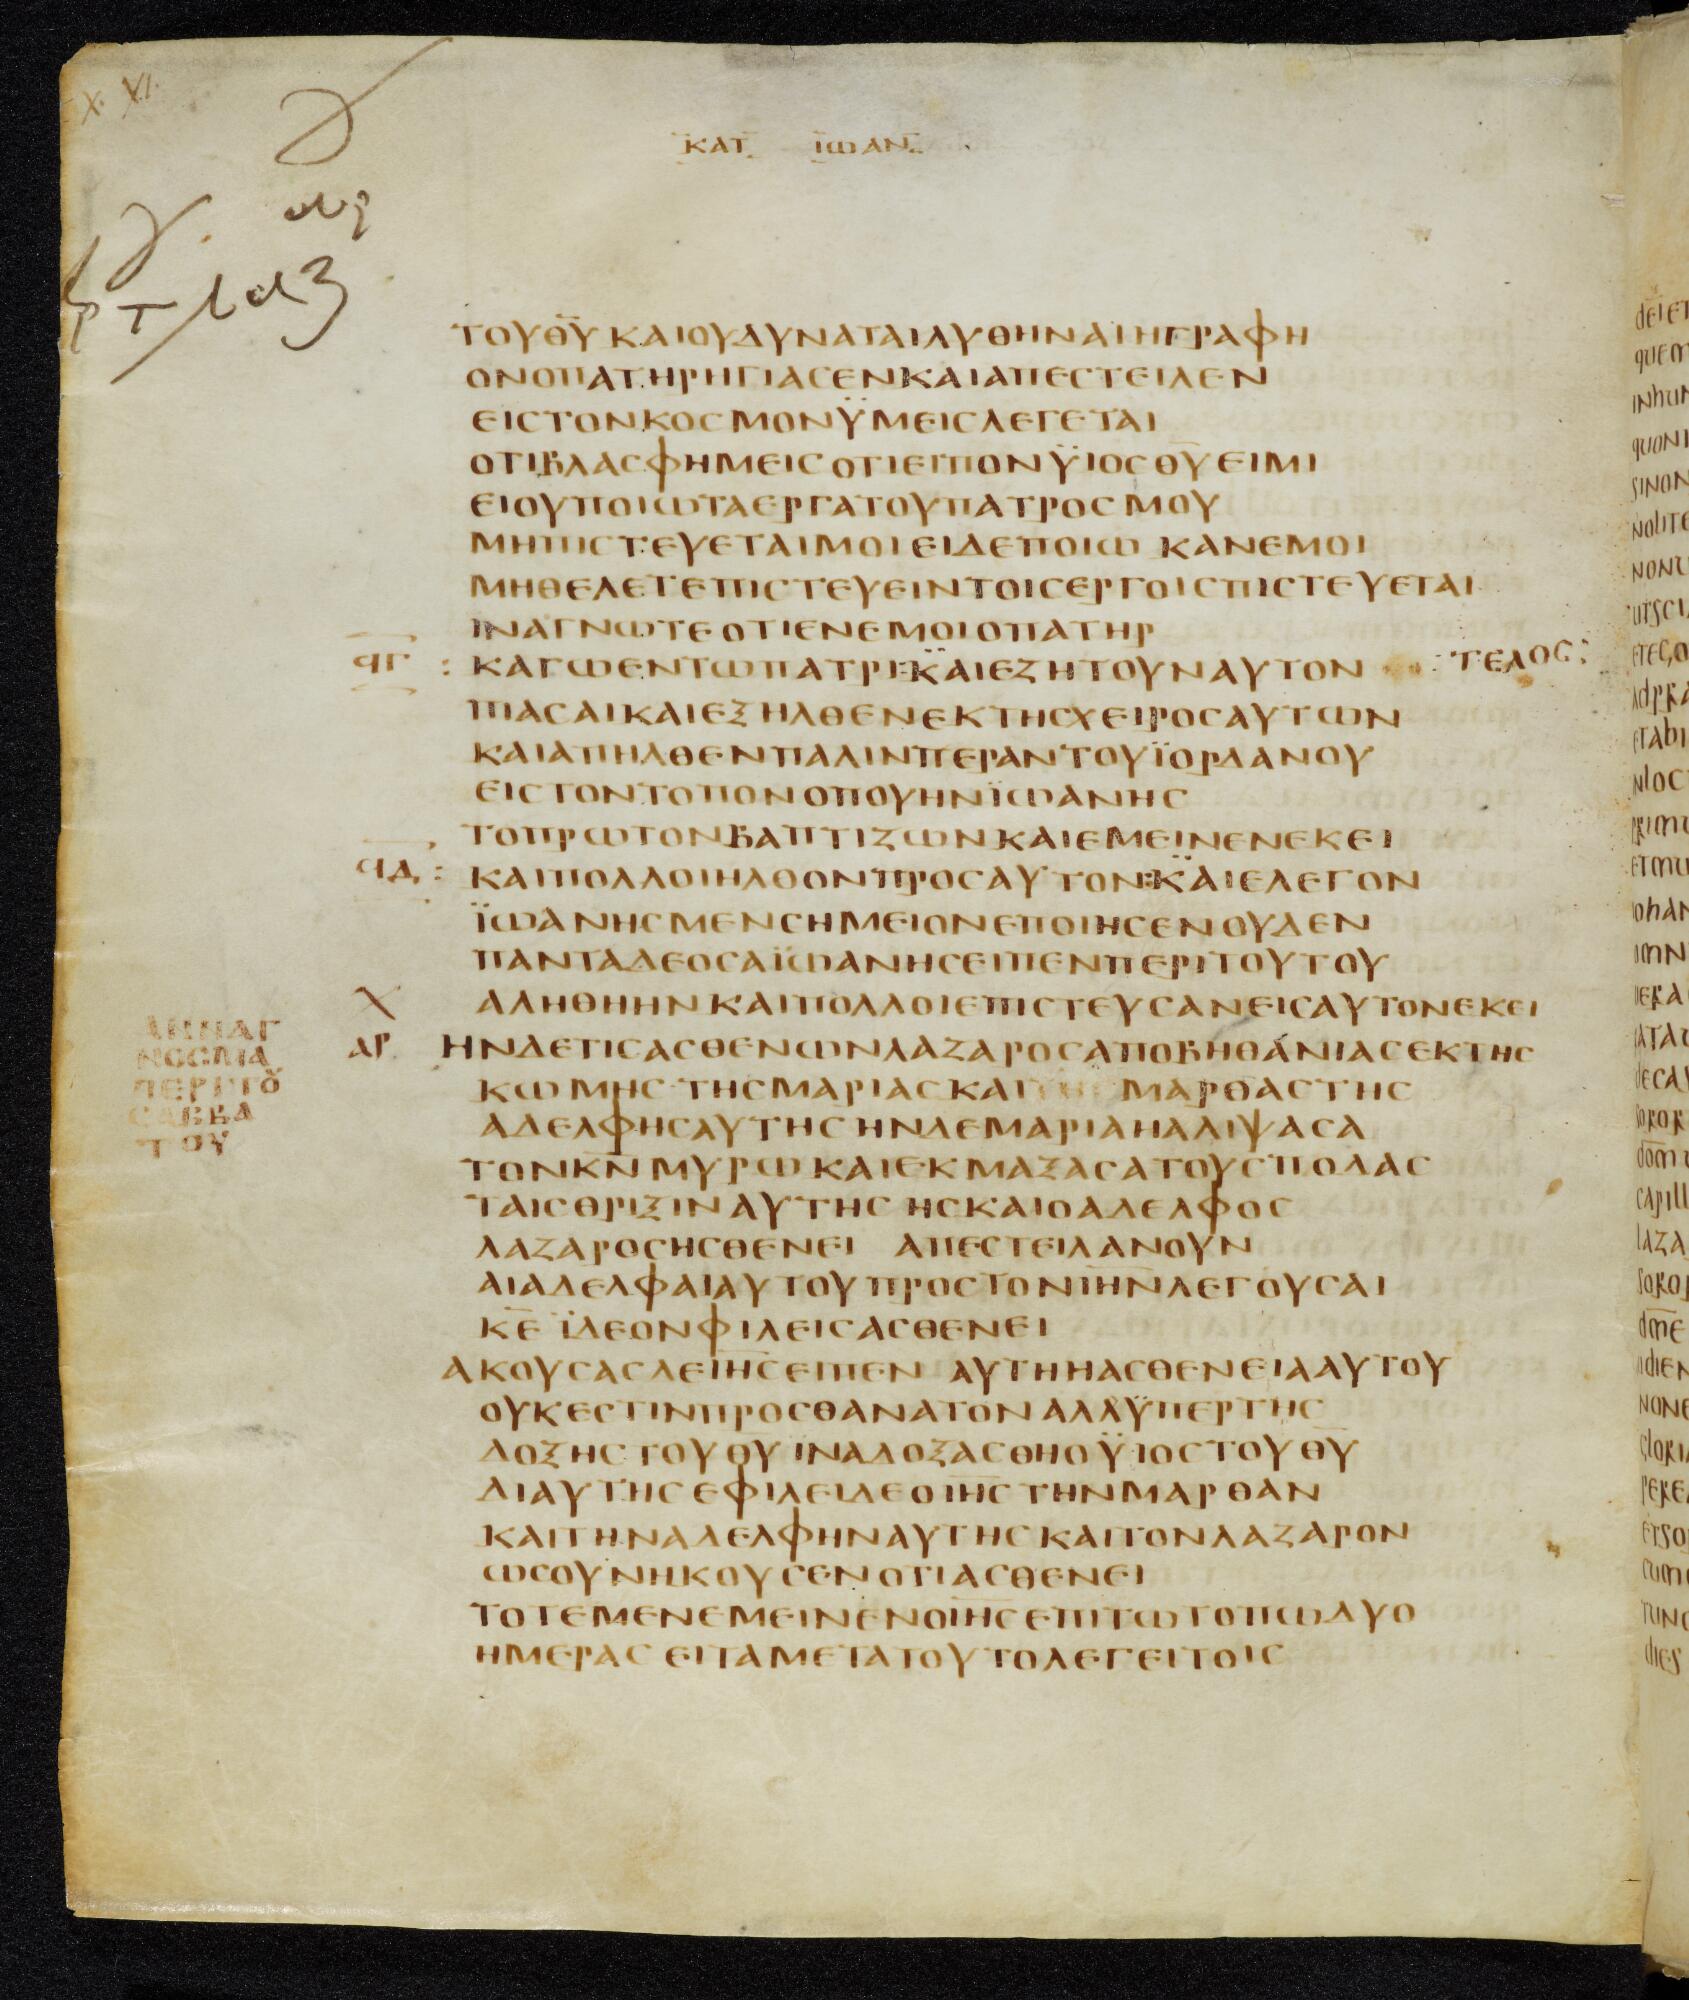 X. XI.
ΚΑΤ ΙΩΑΝ
ΤΟΥΘΥΚΑΙΟΥΔΥΝΑΤΑΙΛΥΘΗΝΑΙΗΓΡΑΦΗ
ΟΝΟΠΑΤΗΡΗΓΙΑΣΕΝΚΑΙΑΠΕΣΤΕΙΛΕΝ
ΕΙΣΤΟΝΚΟΣΜΟΝΫΜΕΙΣΛΕΓΕΤΑΙ
ΟΤΙΒΛΑΣΦΗΜΕΙΣΟΤΙΕΙΠΟΝΫΙΟΣΘΥΕΙΜΙ
ΕΙΟΥΠΟΙΩΤΑΕΡΓΑΤΟΥΠΑΤΡΟΣΜΟΥ
ΜΗΠΙΣΤΕΥΕΤΑΙΜΟΙΕΙΔΕΠΟΙΩ ΚΑΝΕΜΟΙ
ΜΗΘΕΛΕΤΕΠΙΣΤΕΥΕΙΝΤΟΙΣΕΡΓΟΙΣΠΙΣΤΕΥΕΤΑΙ
ΙΝΑΓΝΩΤΕΟΤΙΕΝΕΜΟΙΟΠΑΤΗΡ
ϤΓ : ΚΑΓΩΕΝΤΩΠΑΤΡΙ:ΚΑΙΕΖΗΤΟΥΝΑΥΤΟΝ : ΤΕΛΟΣ:
ΠΙΑΣΑΙΚΑΙΕΞΗΛΘΕΝΕΚΤΗΣΧΕΙΡΟΣΑΥΤΩΝ
ΚΑΙΑΠΗΛΘΕΝΠΑΛΙΝΠΕΡΑΝΤΟΥΪΟΡΔΑΝΟΥ
ΕΙΣΤΟΝΤΟΠΟΝΟΠΟΥΗΝΪΩΑΝΗΣ
ΤΟΠΡΩΤΟΝΒΑΠΤΙΖΩΝΚΑΙΕΜΕΙΝΕΝΕΚΕΙ
ϤΔ : ΚΑΙΠΟΛΛΟΙΗΛΘΟΝΠΡΟΣΑΥΤΟΝ:ΚΑΙΕΛΕΓΟΝ
ΪΩΑΝΗΣΜΕΝΣΗΜΕΙΟΝΕΠΟΙΗΣΕΝΟΥΔΕΝ
ΠΑΝΤΑΔΕΟΣΑΪΩΑΝΗΣΕΙΠΕΝΠΕΡΙΤΟΥΤΟΥ
Χ ΑΛΗΘΗΗΝΚΑΙΠΟΛΛΟΙΕΠΙΣΤΕΥΣΑΝΕΙΣΑΥΤΟΝΕΚΕΙ
ΑΝΝΑΓ
ΝΟΣΜΑ
ΠΕΡΙΤΟ
ΣΑΒΒΑ
ΤΟΥ
ΑΡ ΗΝΔΕΤΙΣΑΣΘΕΝΩΝΛΑΖΑΡΟΣΑΠΟΒΗΘΑΝΙΑΣΕΚΤΗΣ
ΚΩΜΗΣ ΤΗΣΜΑΡΙΑΣΚΑΙ ΜΑΡΘΑΣΤΗΣ
ΑΔΕΛΦΗΣΑΥΤΗΣΗΝΔΕΜΑΡΙΑΗΑΛΙΨΑΣΑ
ΤΟΝΚΝΜΥΡΩΚΑΙΕΚΜΑΞΑΣΑΤΟΥΣΠΟΔΑΣ
ΤΑΙΣΘΡΙΞΙΝΑΥΤΗΣ ΗΣΚΑΙΟΑΔΕΛΦΟΣ
ΛΑΖΑΡΟΣΗΣΘΕΝΕΙ ΑΠΕΣΤΕΙΛΑΝΟΥΝ
ΑΙΑΔΕΛΦΑΙΑΥΤΟΥΠΡΟΣΤΟΝΙΗΝΛΕΓΟΥΣΑΙ
ΚΕ ΪΔΕΟΝΦΙΛΕΙΣΑΣΘΕΝΕΙ
ΑΚΟΥΣΑΣΔΕΙΗΣΕΙΠΕΝ ΑΥΤΗΗΑΣΘΕΝΕΙΑΑΥΤΟΥ
ΟΥΚΕΣΤΙΝΠΡΟΣΘΑΝΑΤΟΝΑΛΛΫΠΕΡΤΗΣ
ΔΟΞΗΣΤΟΥΘΥ ΙΝΑΔΟΞΑΣΘΗΟΫΙΟΣΤΟΥΘΥ
ΔΙΑΥΤΗΣΕΦΙΛΕΙΔΕΟΙΗΣΤΗΝΜΑΡΘΑΝ
ΚΑΙΤΗΝΑΔΕΛΦΗΝΑΥΤΗΣΚΑΙΤΟΝΛΑΖΑΡΟΝ
ΩΣΟΥΝΗΚΟΥΣΕΝΟΤΙΑΣΘΕΝΕΙ
ΤΟΤΕΜΕΝΕΜΕΙΝΕΝΟΙΗΣΕΠΙΤΩΤΟΠΩΔΥΟ
ΗΜΕΡΑΣ ΕΙΤΑΜΕΤΑΤΟΥΤΟΛΕΓΕΙΤΟΙΣ